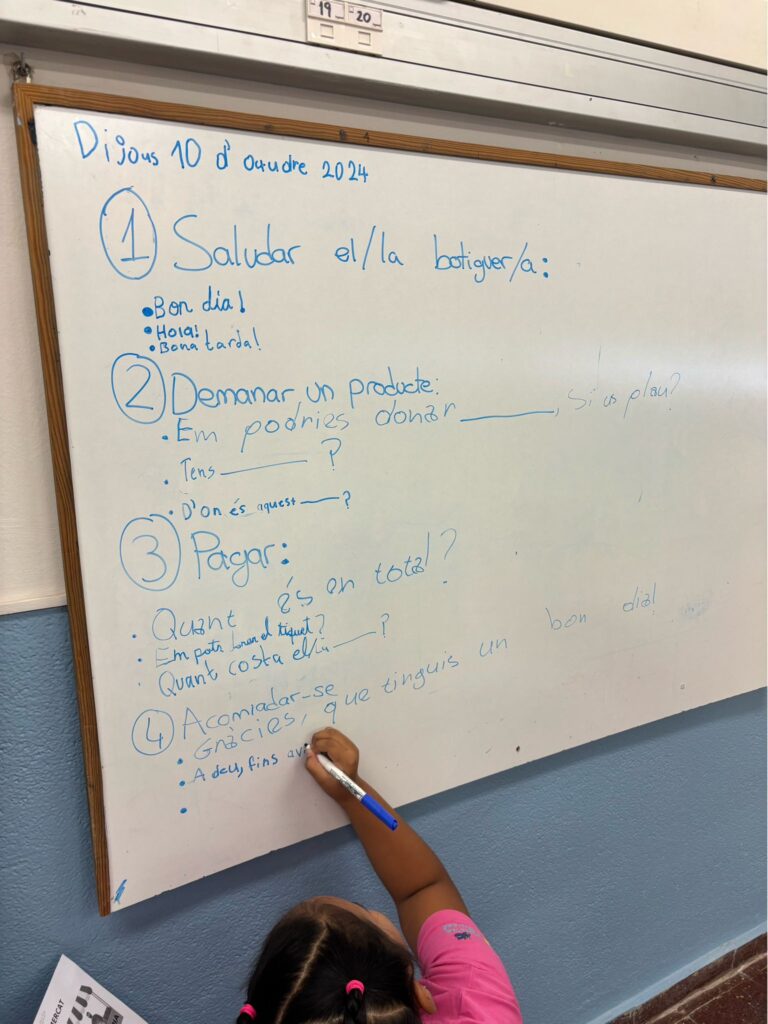 19 20
Dijous 10 d' octubre 2024
1 Saludar el/la botiguer/a:
• Bon dia!
• Hola!
• Bona tarda!
2 Demanar un producte:
• Em podries donar ______, si us plau?
• Tens ______ ?
• D'on és aquest ______?
3 Pagar:
• Quant és en total?
• Em pots el tiquet?
• Quant costa el/la ______?
4 Acomiadar-se
• Gràcies, que tinguis un bon dia!
• A deu, fins avi
•
ERCAT